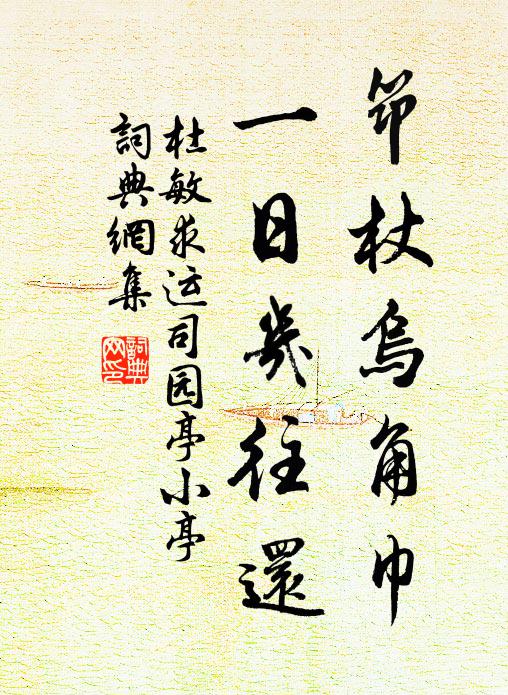 笻杖烏角巾
一日幾往還
杜敏求运司园亭小亭
詞典網集
詞典
网印